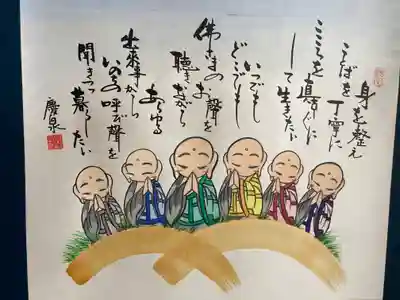 身を整え
ことばを丁寧に
こころを真すぐに
して生きたい
いつでも
どこでも
佛さまのお聲を
聴きながら
あらゆる
出来事から
いのちの呼び聲を
聞きつつ暮らしたい
慶泉